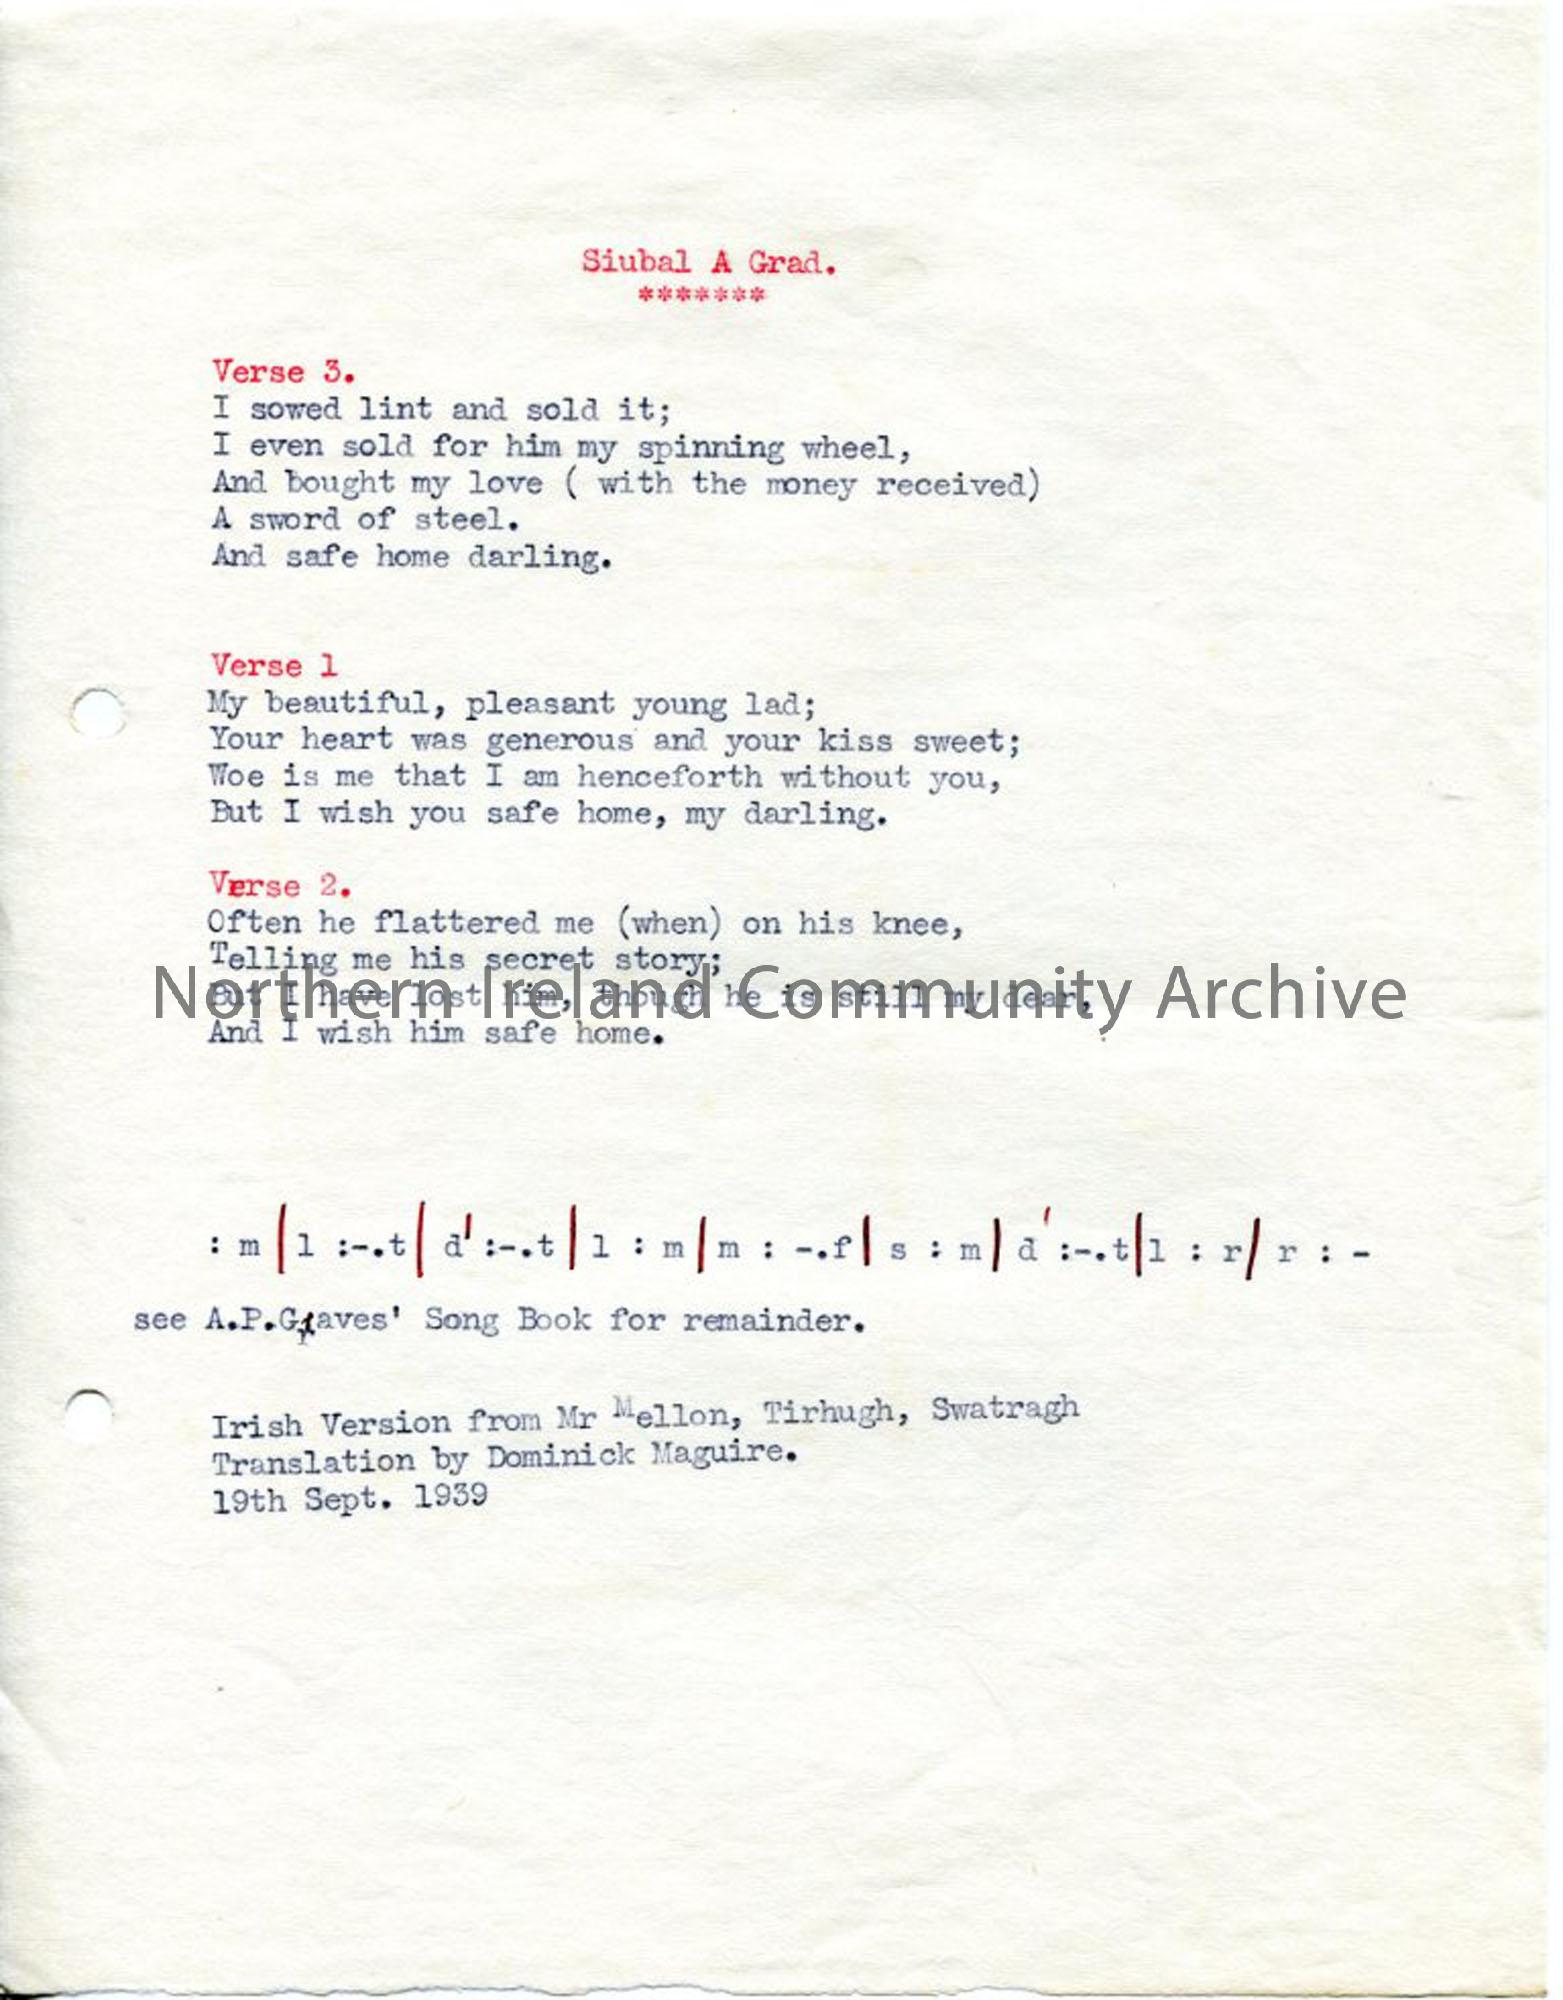 Siubal A Grad.
*******
Verse 3.
I sowed lint and sold it;
I even sold for him my spinning wheel,
And bought my love ( with the money received)
A sword of steel.
And safe home darling.
Verse 1
My beautiful, pleasant young lad;
Your heart was generous and your kiss sweet;
Woe is me that I am henceforth without you,
But I wish you safe home, my darling.
Verse 2.
Often he flattered me (when) on his knee,
Telling me his secret story;
But I have lost him, though he is still my dear,
And I wish him safe home.
Northern Ireland Community Archive
: m | l :-.t | d' :-.t | l : m | m : -.f | s : m | d' :-.t | l : r / r : -
see A.P.Graves' Song Book for remainder.
Irish Version from Mr Mellon, Tirhugh, Swatragh
Translation by Dominick Maguire.
19th Sept. 1939